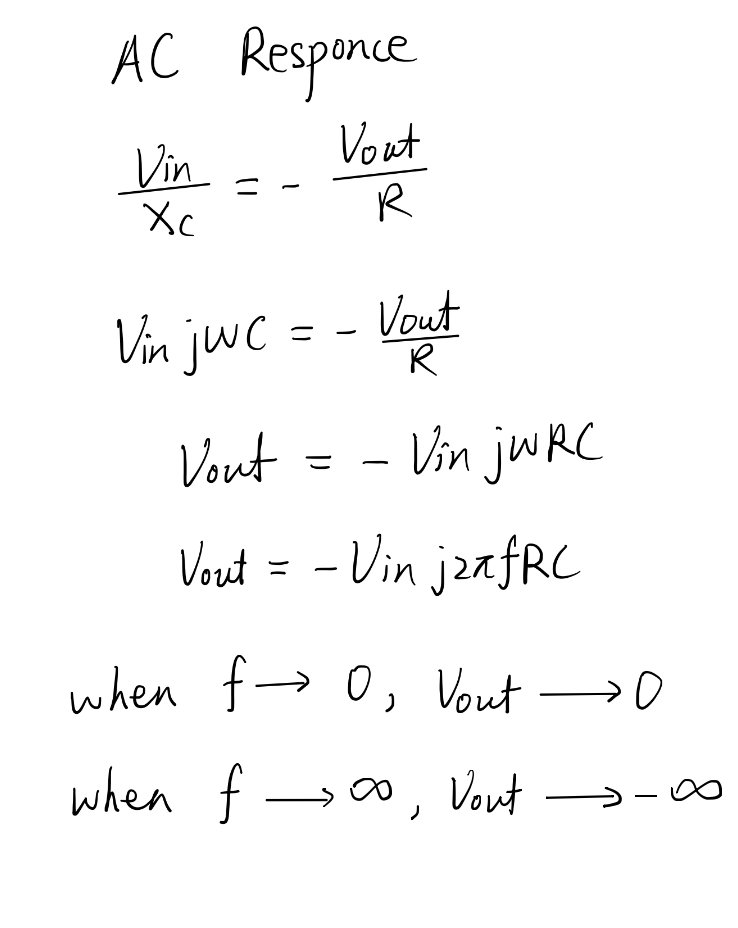 AC Responce
Vin/Xc = - Vout/R
Vin jωC = - Vout/R
Vout = - Vin jωRC
Vout = - Vin j2πfRC
when f → 0, Vout → 0
when f → ∞, Vout → -∞